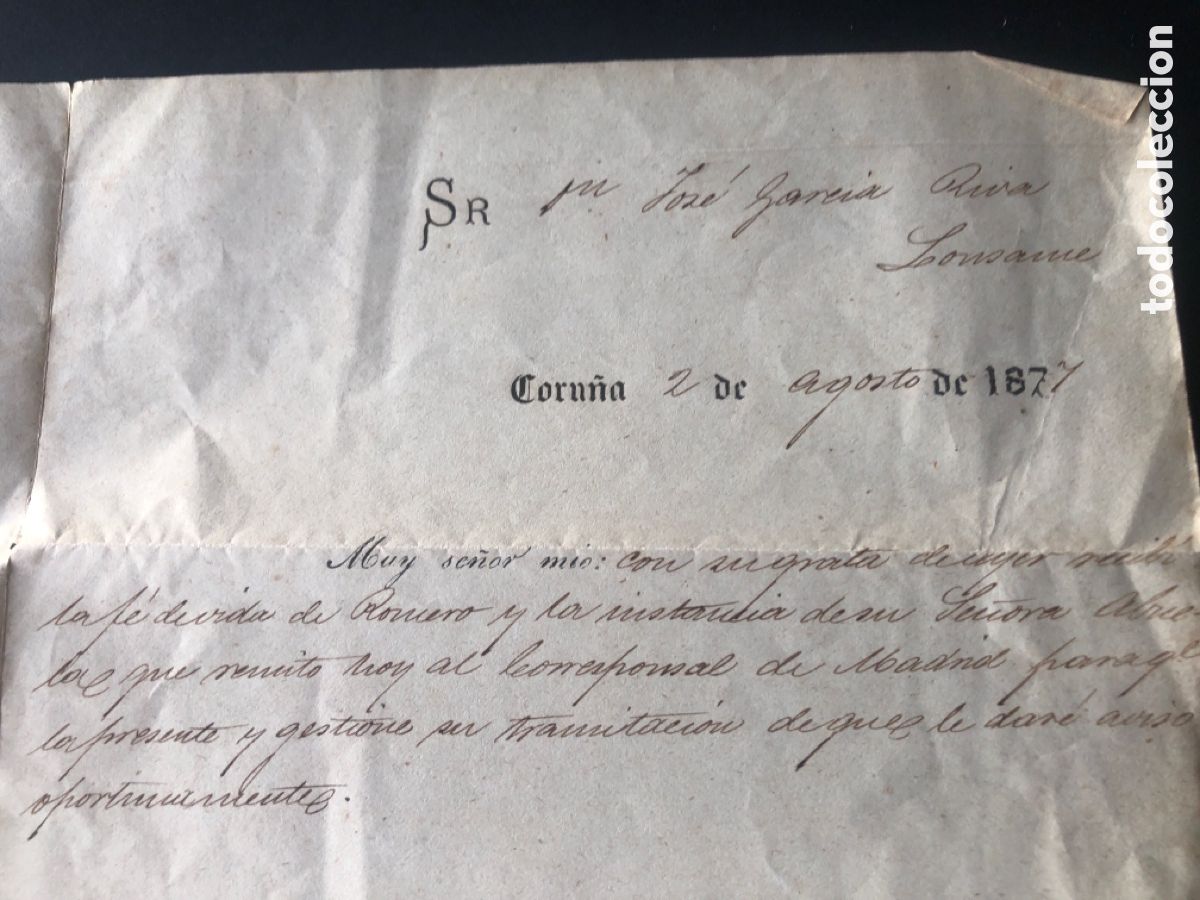 SR Dn José Garcia Riva
Lousame
Coruña 2 de agosto de 1877
Muy señor mio: con su grata de ayer recibí
la fé de vida de Romero y la instancia de su Señora Abue
la que remito hoy al Corresponsal de Madrid para q^e
la presente y gestione su tramitación de que le daré aviso
oportunamente.
todocoleccion